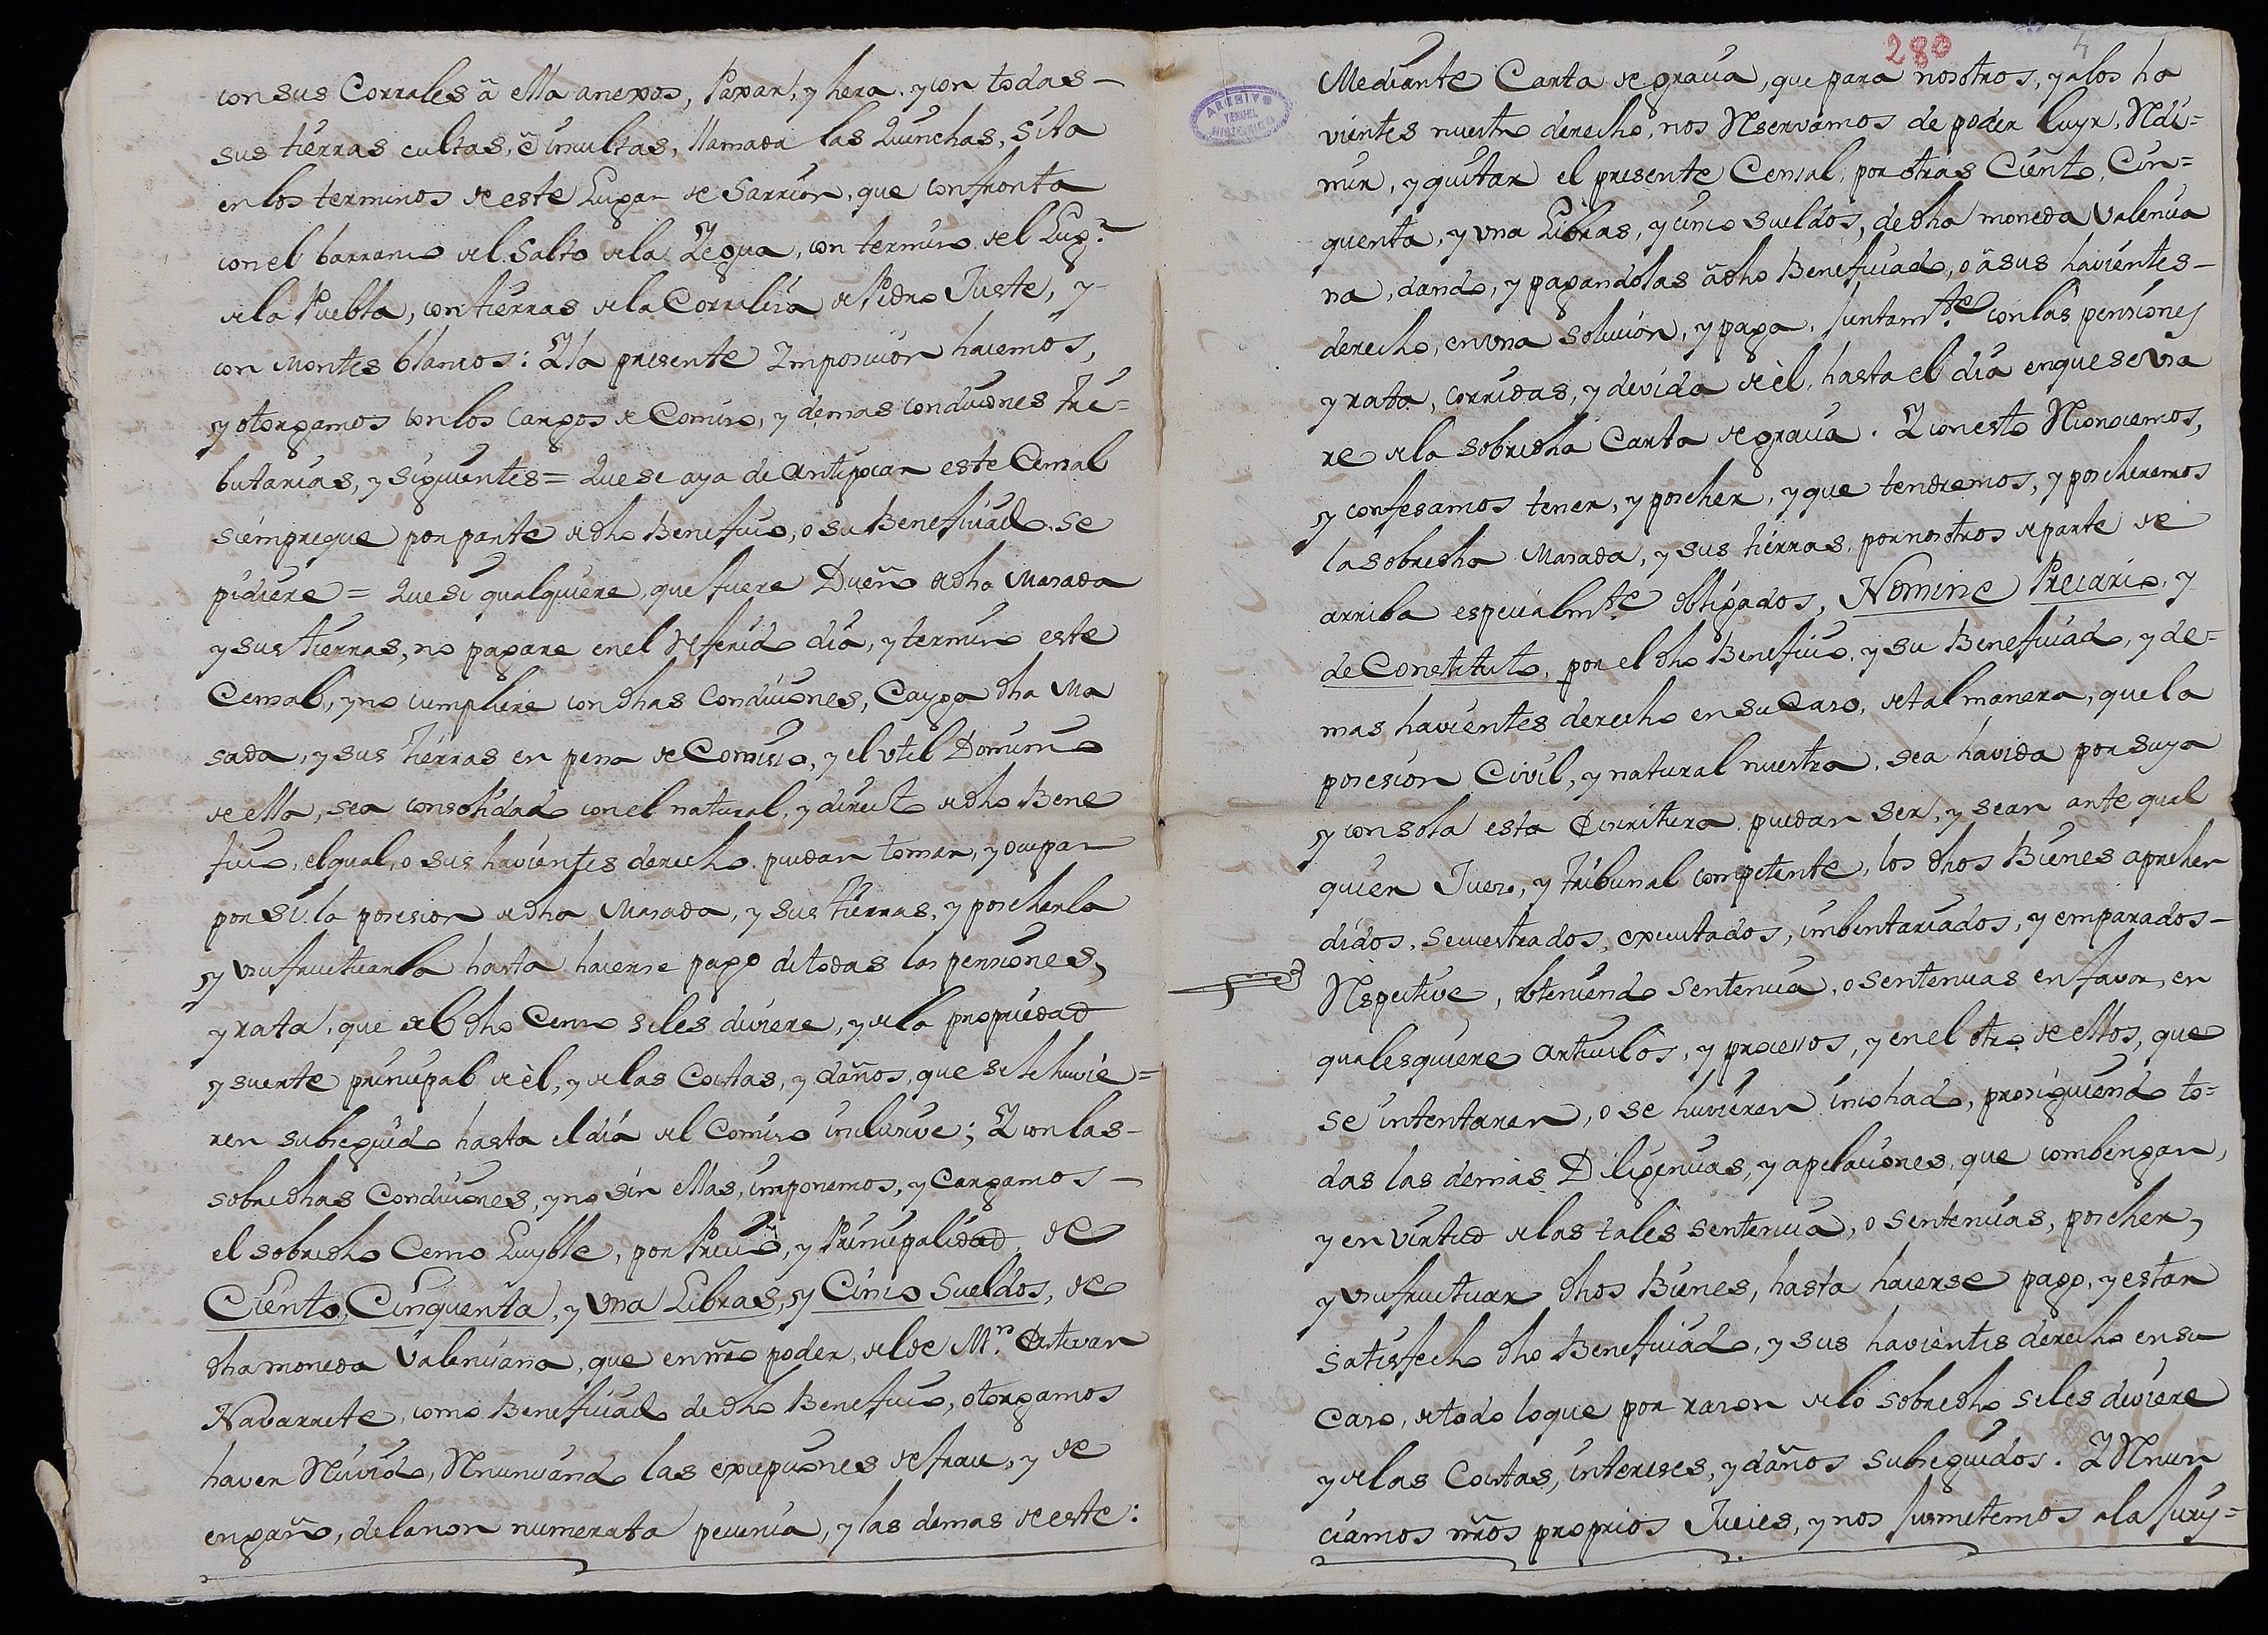 con sus Corrales â ella anexos, Paxar, y hera, y con todas-
sus tierras cultas, ê incultas, llamada las Quinchas, sita
en los terminos de este Lugar de Sarrion, que confronta
con el barranco del Salto de la Yegua, con termino del Lug.r
de la Puebla, con tierras de la Corraliza de Pedro Juste, y
con Montes blancos: Y la presente Imposicion hacemos,
y otorgamos con los cargos de Comiso, y demas condiciones tri=
butarias, y siguientes= Que se aya de Antipocar este Censal
siempre que por parte de dho Beneficio, o su Beneficiado se
pidiere= Que si qualquiere, que fuere Dueño de dha Masada
y sus tierras, no pagare en el Referido dia, y termino este
Censal, y no cumpliere con dhas Condiciones, Cayga dha Ma
sada, y sus tierras en pena de Comiso, y el vtil Dominio
de ella, sea consolidado con el natural, y directo de dho Bene
ficio, el qual, o sus havientes derecho puedan tomar, y ocupar
por si la posesion de dha Masada, y sus tierras, y posehenla
y vsufructuarla hasta hacerse pago de todas las pensiones,
y rata, que del dho Censo seles deviere, y de la propiedad
y suerte principal de èl, y de las Costas, y daños, que se le huvie=
ren subseguido hasta el dia del Comiso inclusive; Y con las-
sobredhas Condiciones, y no sin ellas, imponemos, y Cargamos-
el sobredho Censo Luyble, por Precio, y Principalidad de
Ciento, Cinquenta, y Vna Libras, y Cinco Sueldos, de
dha moneda Valenciana, que en nro poder, del de M.n Estevan
Navarrete, como Beneficiado de dho Beneficio, otorgamos
haver Recivido, Renunciando las excepciones de frau, y de
engaño, de la non numerata pecunia, y las demas de este:
280
4
ARCHIVO
TERUEL
HISTORICO
Mediante Carta de gracia, que para nosotros, y a los ha
vientes nuestro derecho, nos Reservamos de poder luyr, Redi=
mir, y quitar el presente Censal, por otras Ciento, Cin=
quenta, y vna Libras, y cinco sueldos, de dha moneda Valencia
na, dando, y pagandolas â dho Beneficiado, o â sus havientes-
derecho, en vna solucion, y paga, Juntam.te con las pensiones
y rata, corridas, y devida de èl, hasta el dia en que se vsa
re de la sobredha Carta de gracia. Y con esto Reconocemos,
y confesamos tener, y poseher, y que tendremos, y poseheremos
la sobredha Masada, y sus tierras, por nosotros de parte de
arriba especialm.te obligados, Nomine Precario, y
de Constituto, por el dho Beneficio, y su Beneficiado, y de=
mas havientes derecho en su Caso, de tal manera, que la
posesion Civil, y natural nuestra, sea havida por suya
y con sola esta Escritura puedan ser, y sean ante qual
quier Juez, y tribunal competente, los dhos Bienes aprehen
didos, secuestrados, executados, imbentariados, y emparados-
Respective, obteniendo sentencia, o sentencias en favor, en
qualesquiere articulos, y procesos, y en el otro de ellos, que
se intentaren, o se huvieren incohado, prosiguiendo to=
das las demas Diligencias, y apelaciones, que combengan,
y en virtud de las tales sentencia, o sentencias, poseher,
y vsufructuar dhos Bienes, hasta hacerse pago, y estar
satisfecho dho Beneficiado, y sus havientes derecho en su
Caso, de todo lo que por razon de lo sobredho seles deviere
y de las Costas, intereses, y daños subseguidos. Y Renun
ciamos nros proprios Jueces, y nos Jusmetemos a la Jury=